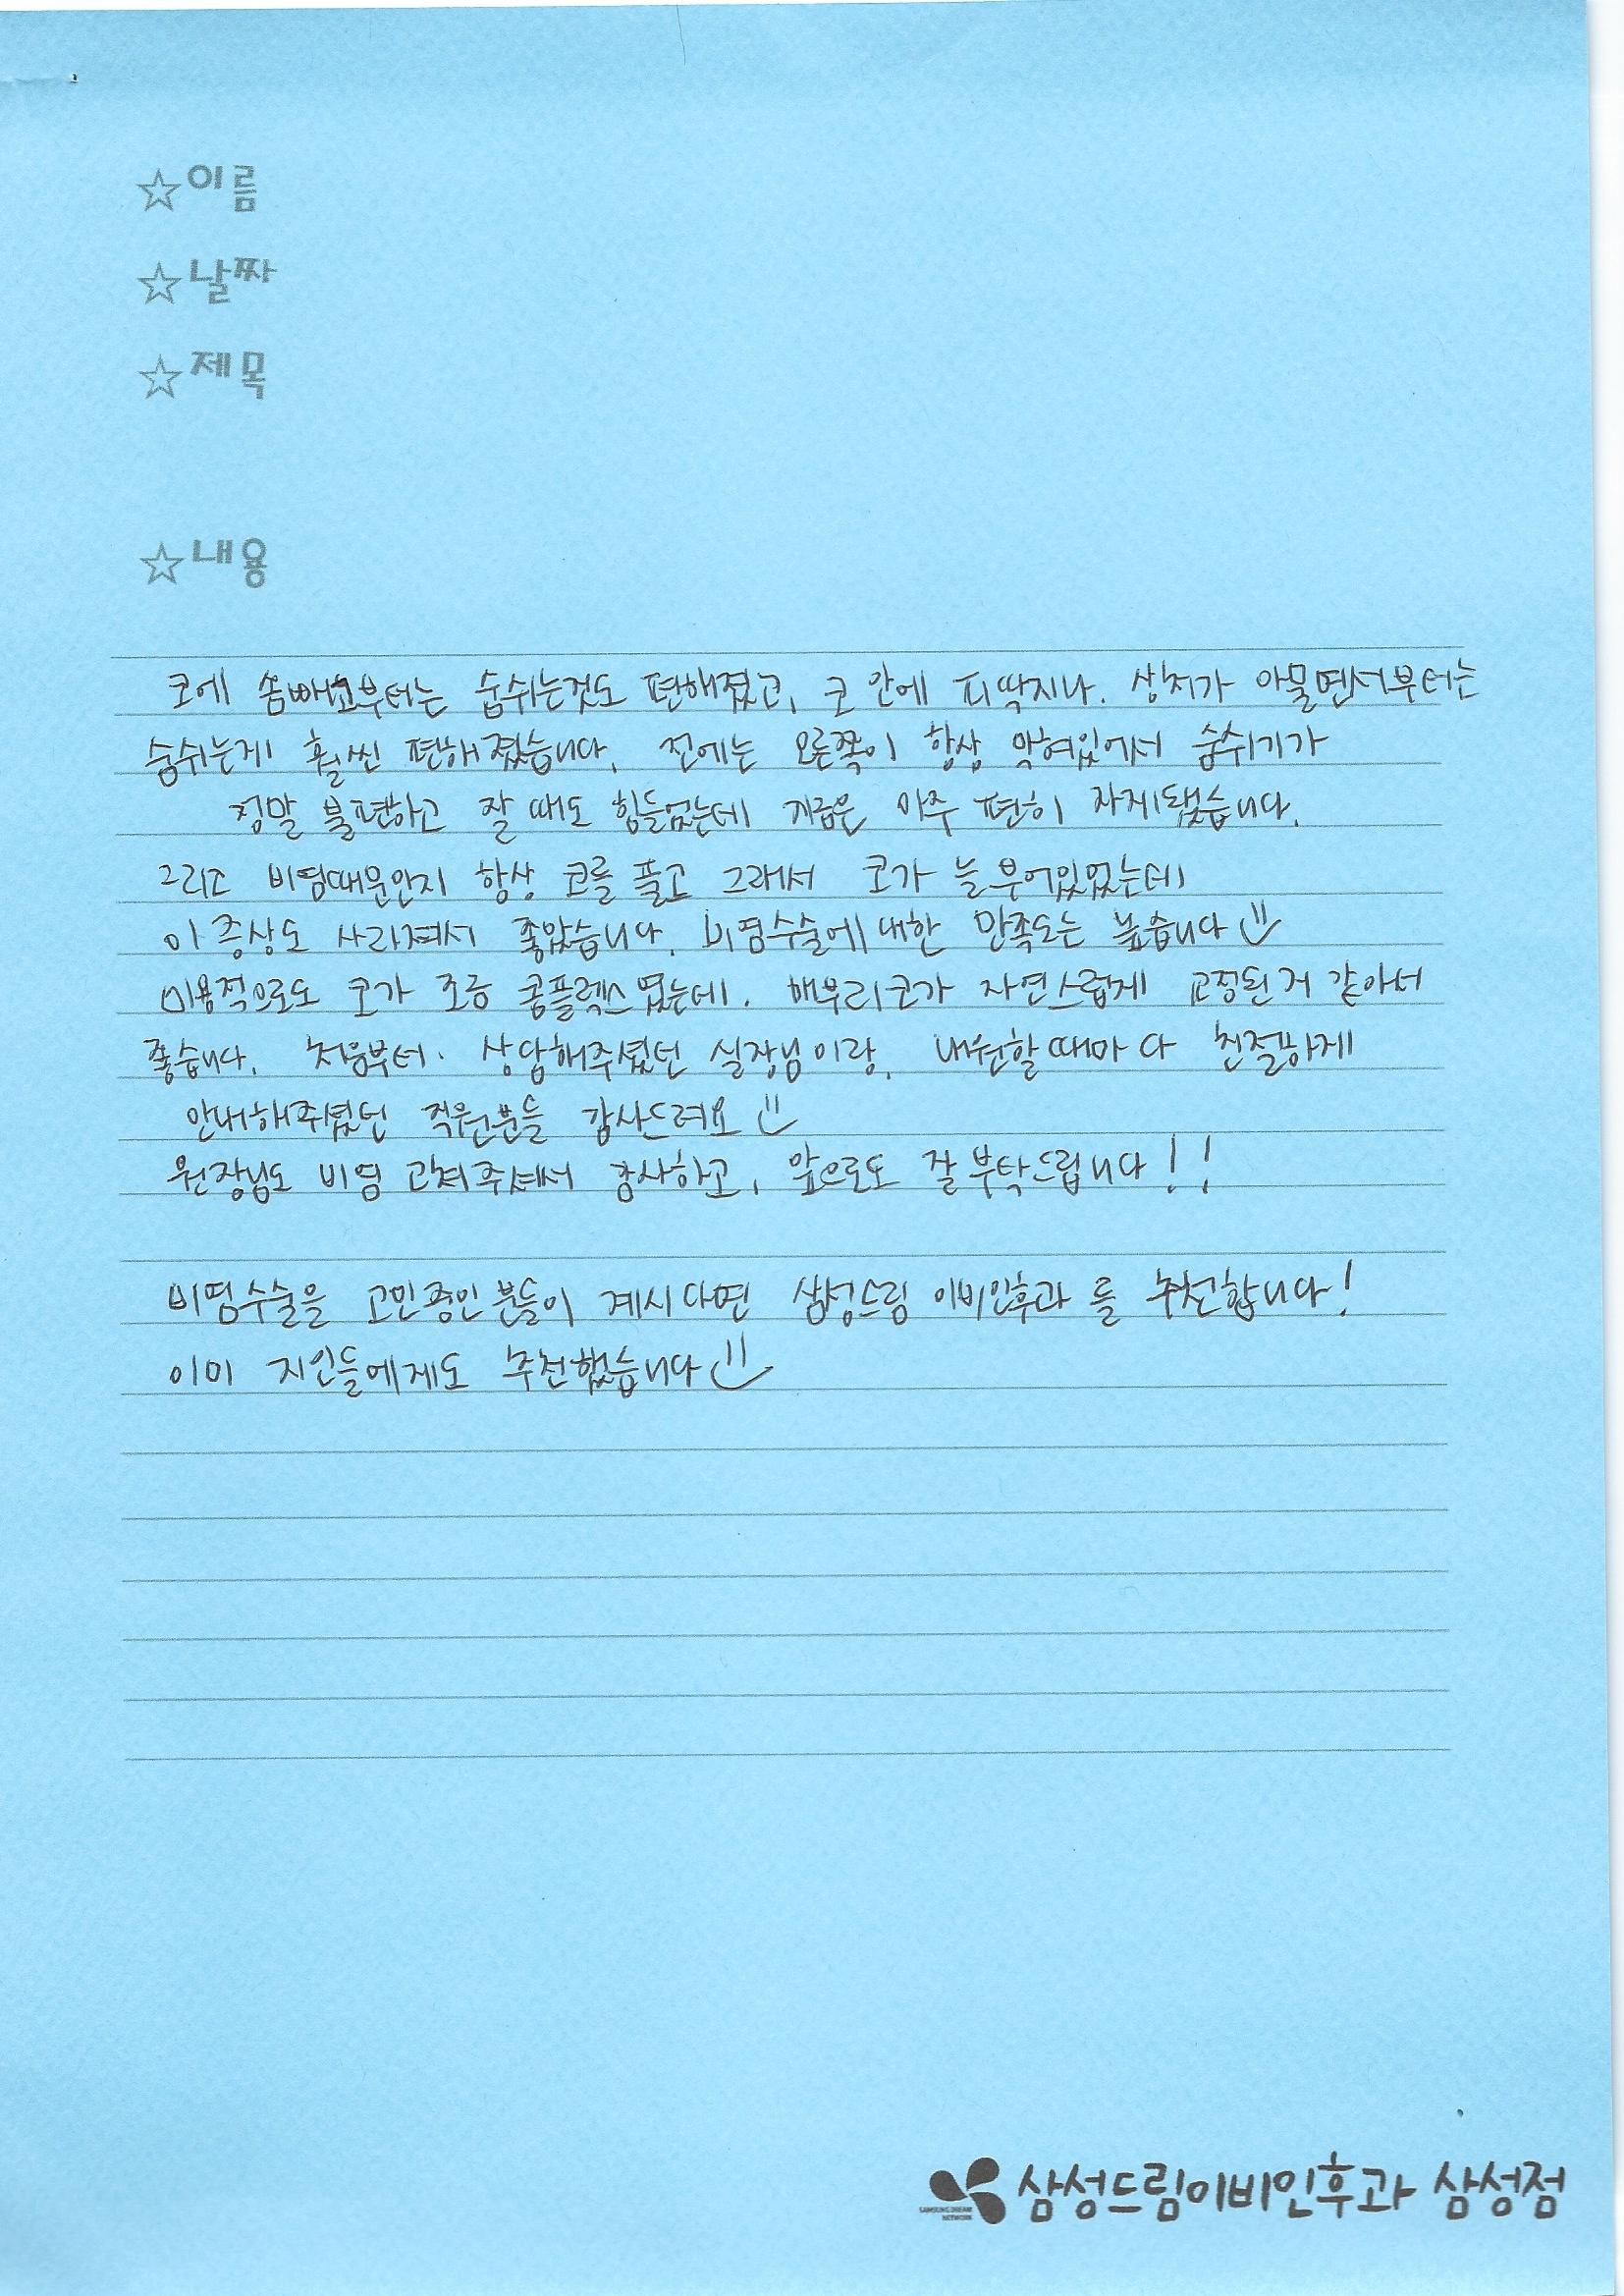 ☆이름
☆날짜
☆제목
☆내용
코에 솜빼고부터는 숨쉬는것도 편해졌고, 코 안에 피딱지나. 상처가 아물면서부터는
숨쉬는게 훨씬 편해졌습니다. 전에는 오른쪽이 항상 막혀있어서 숨쉬기가
정말 불편하고 잘 때도 힘들었는데 지금은 아주 편히 자게됐습니다.
그리고 비염때문인지 항상 코를 풀고 그래서 코가 늘 부어있었는데
이 증상도 사라져서 좋았습니다. 비염수술에 대한 만족도는 높습니다
미용적으로도 코가 조금 콤플렉스였는데. 매부리코가 자연스럽게 교정된거 같아서
좋습니다. 처음부터. 상담해주셨던 실장님이랑, 내원할때마다 친절하게
안내해주셨던 직원분들 감사드려요
원장님도 비염 고쳐주셔서 감사하고, 앞으로도 잘 부탁드립니다!!
비염수술을 고민중인분들이 계시다면 삼성드림 이비인후과를 추천합니다!
이미 지인들에게도 추천했습니다
SAMSUNG DREAM
NETWORK
삼성드림이비인후과 삼성점